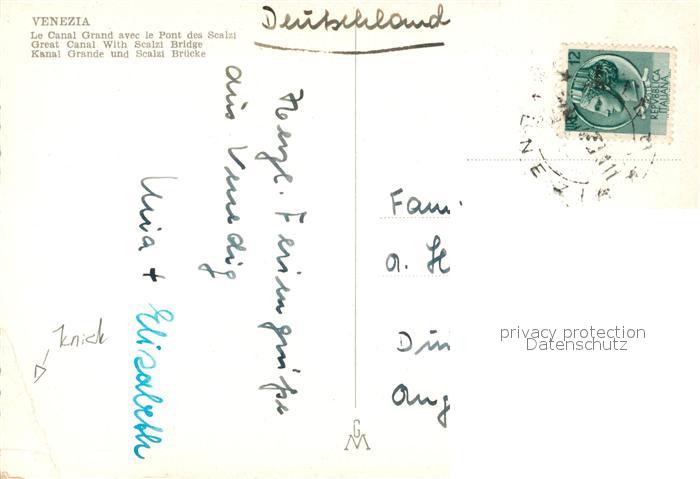 VENEZIA
Le Canal Grand avec le Pont des Scalzi
Great Canal With Scalzi Bridge
Kanal Grande und Scalzi Brücke
Deutschland
12
REPVBBLICA
ITALIANA
VENEZIA
Herzl. Feriengrüße
aus Venedig
+ Elisabeth
Knick
Fam.
a. H
privacy protection
Datenschutz
GM